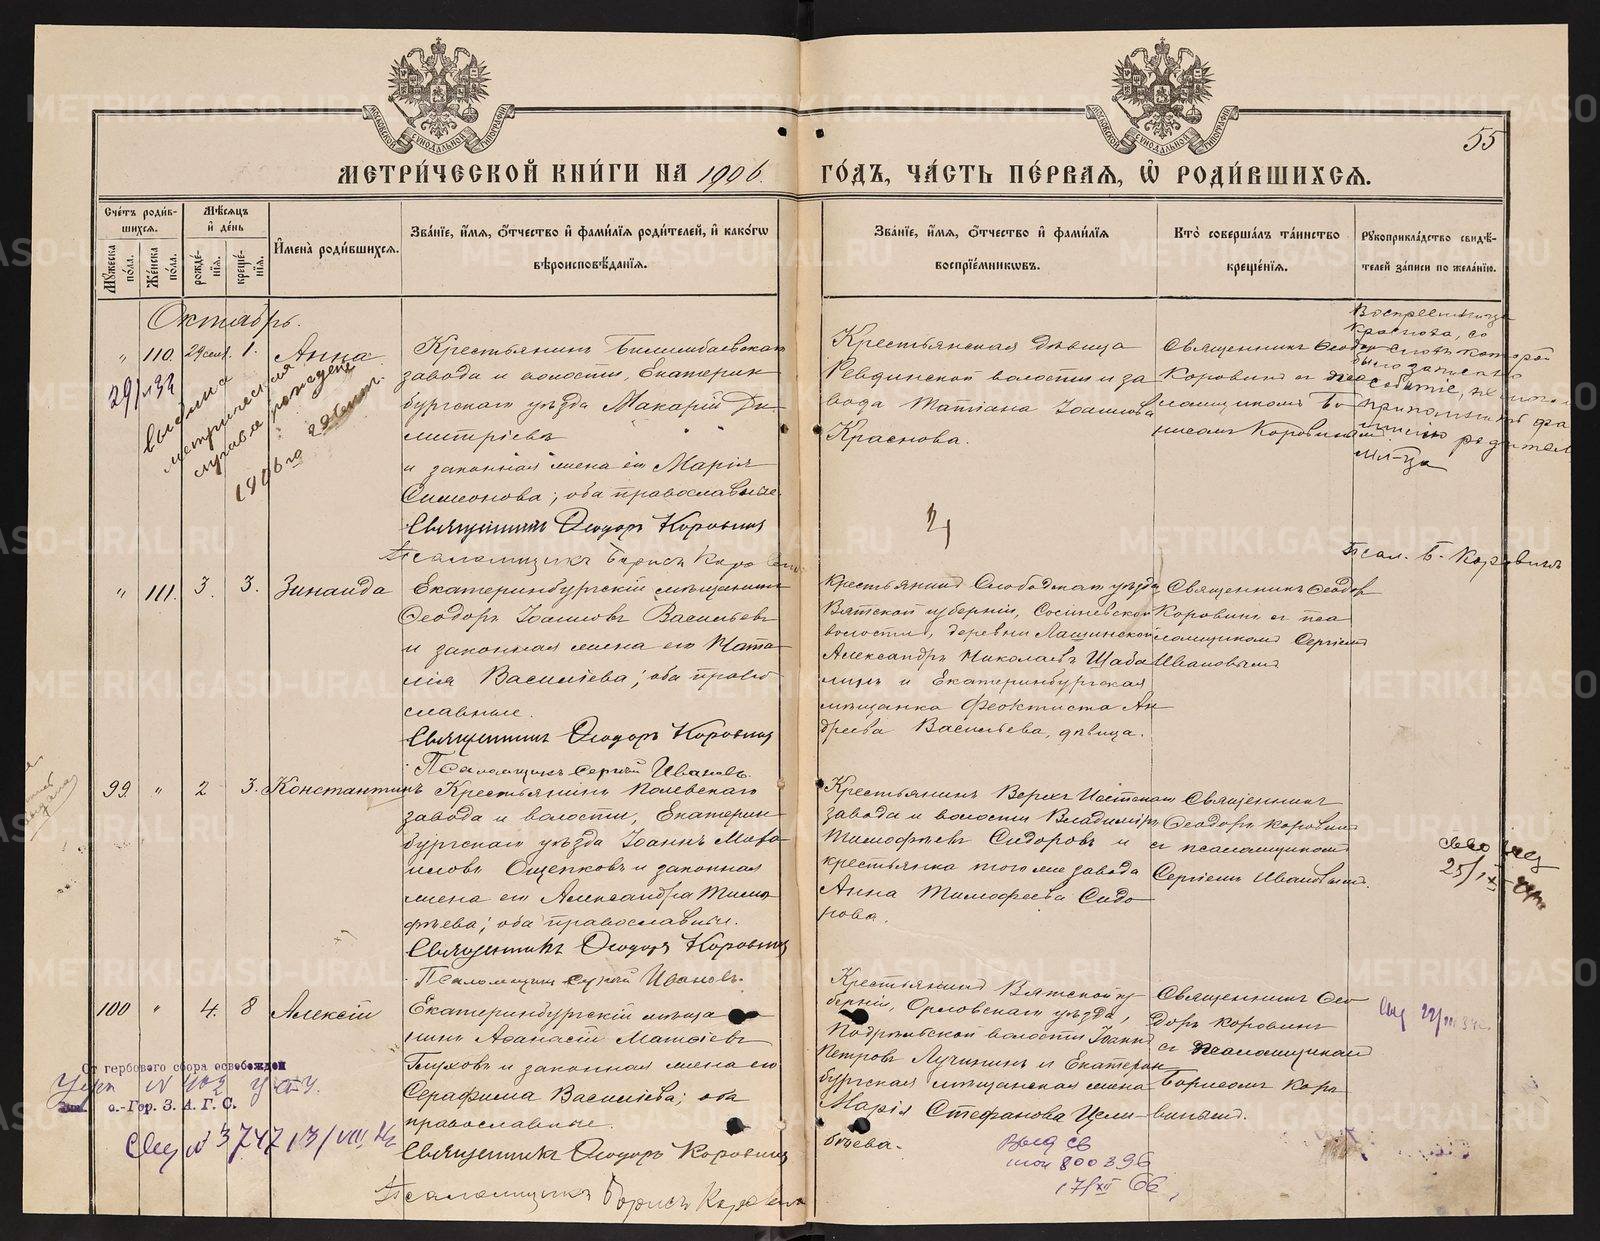 МЕТРИ́ЧЕСКОЙ КНИ́ГИ НА 1906.
ГО́ДЪ, ЧА́СТЬ ПЕ́РВАЯ, Ѽ РОДИ́ВШИХСЯ.
55
Сче́тъ роди́в-
шихся.
Мѣ́сяцъ
и҆ де́нь
Мꙋ́жеска по́ла.
Же́нска по́ла.
рожде́-
нїя.
креще́-
нїя.
И҆мена̀ роди́вшихся.
Зва́нїе, и҆́мя, ѻ҆́тчество и҆ фами́лїя роди́телей, и҆ како́гѡ
вѣроисповѣ́данїя.
Зва́нїе, и҆́мя, ѻ҆́тчество и҆ фами́лїя
воспрїе́мникѡвъ.
Кто̀ соверша́лъ та́инство
креще́нїя.
Рꙋкоприкла́дство свидѣ́-
телей за́писи по жела́нїю.
Октябрь.
" 110. 29 сент. 1. Анна
Крестьянинъ Билимбаевскаго
завода и волости, Екатерин
бургскаго уѣзда Макарій Ди
митріевъ
и законная жена его Марія
Симеонова; оба православные.
Священникъ Ѳеодоръ Коровинъ
Псаломщикъ Борисъ Коровинъ
Крестьянская дѣвица
Ревдинской волости и за
вода Татіана Іоаннова
Краснова.
Священникъ Ѳеодоръ
Коровинъ съ пса
ломщикомъ Бо
рисомъ Коровинымъ
Воспреемница
Краснова, со
словъ которой
было записано
событіе, не
припомнитъ фа
милію родителей
мл-ца
Псал. Б. Коровинъ
29/
выдана
метрическая
справка рожден
29 сент.
1906 го
" 111. 3. 3. Зинаида
Екатеринбургскій мѣщанинъ
Ѳеодоръ Іоанновъ Васильевъ
и законная жена его Ната
лія Васильева; оба право
славные.
Священникъ Ѳеодоръ Коровинъ
Псаломщикъ Сергій Ивановъ.
Крестьянинъ Слободскаго уѣзда
Вятской губерніи, Сосневской
волости, деревни Лашинской
Александръ Николаевъ Шаба
линъ и Екатеринбургская
мѣщанка Феоктиста Ан
дреева Васильева, дѣвица.
Священникъ Ѳеодоръ
Коровинъ съ пса
ломщикомъ Сергіемъ
Ивановымъ
99. " 2 3. Константинъ
Крестьянинъ Полевскаго
завода и волости, Екатерин
бургскаго уѣзда Іоаннъ
Ощепковъ и законная
жена его Александра Тимо
фѣева; оба православные.
Священникъ Ѳеодоръ Коровинъ
Псаломщикъ Сергій Ивановъ.
Крестьянинъ Верхъ Исетскаго
завода и волости Владиміръ
Тимофѣевъ Сидоровъ и
крестьянка того же завода
Анна Тимофеева Сидо
рова.
Священникъ
Ѳеодоръ Коровинъ
съ псаломщикомъ
Сергіемъ Ивановымъ.
100 " 4. 8 Алексій
Екатеринбургскій мѣща
нинъ Аѳанасій Матѳіевъ
Глуховъ и законная жена его
Серафима Васильева; оба
православные.
Священникъ Ѳеодоръ Коровинъ
Псаломщикъ Борисъ Коровинъ
Крестьянинъ Вятской гу
берніи, Орловскаго уѣзда,
волости Іоаннъ
Петровъ Лучининъ и Екатерин
бургская мѣщанская жена
Марія Стефанова Цели-
бѣева.
Священникъ Ѳео
доръ Коровинъ
съ псаломщикомъ
Борисомъ Коро
винымъ.
От гербового сбора освобожден
о.-Гор. З. А. Г. С.
№ 3747 13/VIII
Выд св
800396
17/XII 66.
METRIKI.GASO-URAL.RU